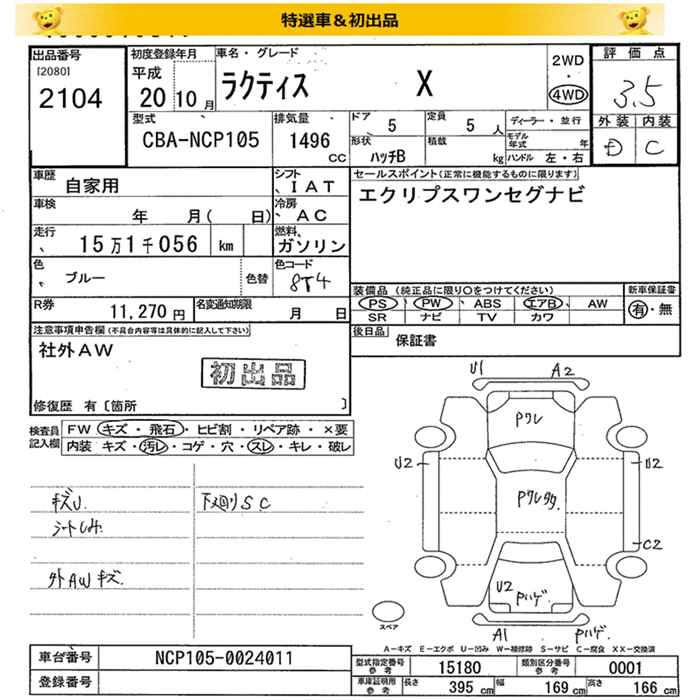 特選車＆初出品
出品番号
[2080]
2104
初度登録年月
平成
20 10 月
車名・グレード
ラクティス X
2WD
・
4WD
評価点
3.5
外装 内装
D C
型式
CBA-NCP105
排気量
1496
cc
ドア
5
定員
5 人
形状
ハッチB
積載
kg
ディーラー・並行
モデル年式 年
ハンドル 左・右
車歴
自家用
シフト
IAT
セールスポイント(正常に機能するものに限ります)
エクリプスワンセグナビ
車検
年 月( 日)
冷房
AC
走行
15万1千056 km
燃料
ガソリン
色
ブルー
色替
色コード
8T4
R券
11,270 円
名変通知期限
月 日
装備品 (純正品に限り○をつけてください)
PS PW ABS エアB AW
SR ナビ TV カワ
新車保証書
有・無
後日品
保証書
注意事項申告欄(不具合内容等は具体的に記入して下さい)
社外AW
初出品
修復歴 有〔箇所 〕
検査員
記入欄
FW キズ・飛石・ヒビ割・リペア跡・×要
内装 キズ・汚レ・コゲ・穴・スレ・キレ・破レ
キズU
シートしみ
外AWキズ.
下メ回りSC
U1 A2
Pワレ
U2 U2
C2
U2 Pハゲ.
A1 Pハゲ.
スペア
A-キズ E-エクボ U-凹み W-補修跡 S-サビ C-腐食 XX-交換済
車台番号
NCP105-0024011
登録番号
型式指定番号
参考
15180
類別区分番号
参考
0001
車庫証明用
参考
長さ 395 cm 幅 169 cm 高さ 166 cm